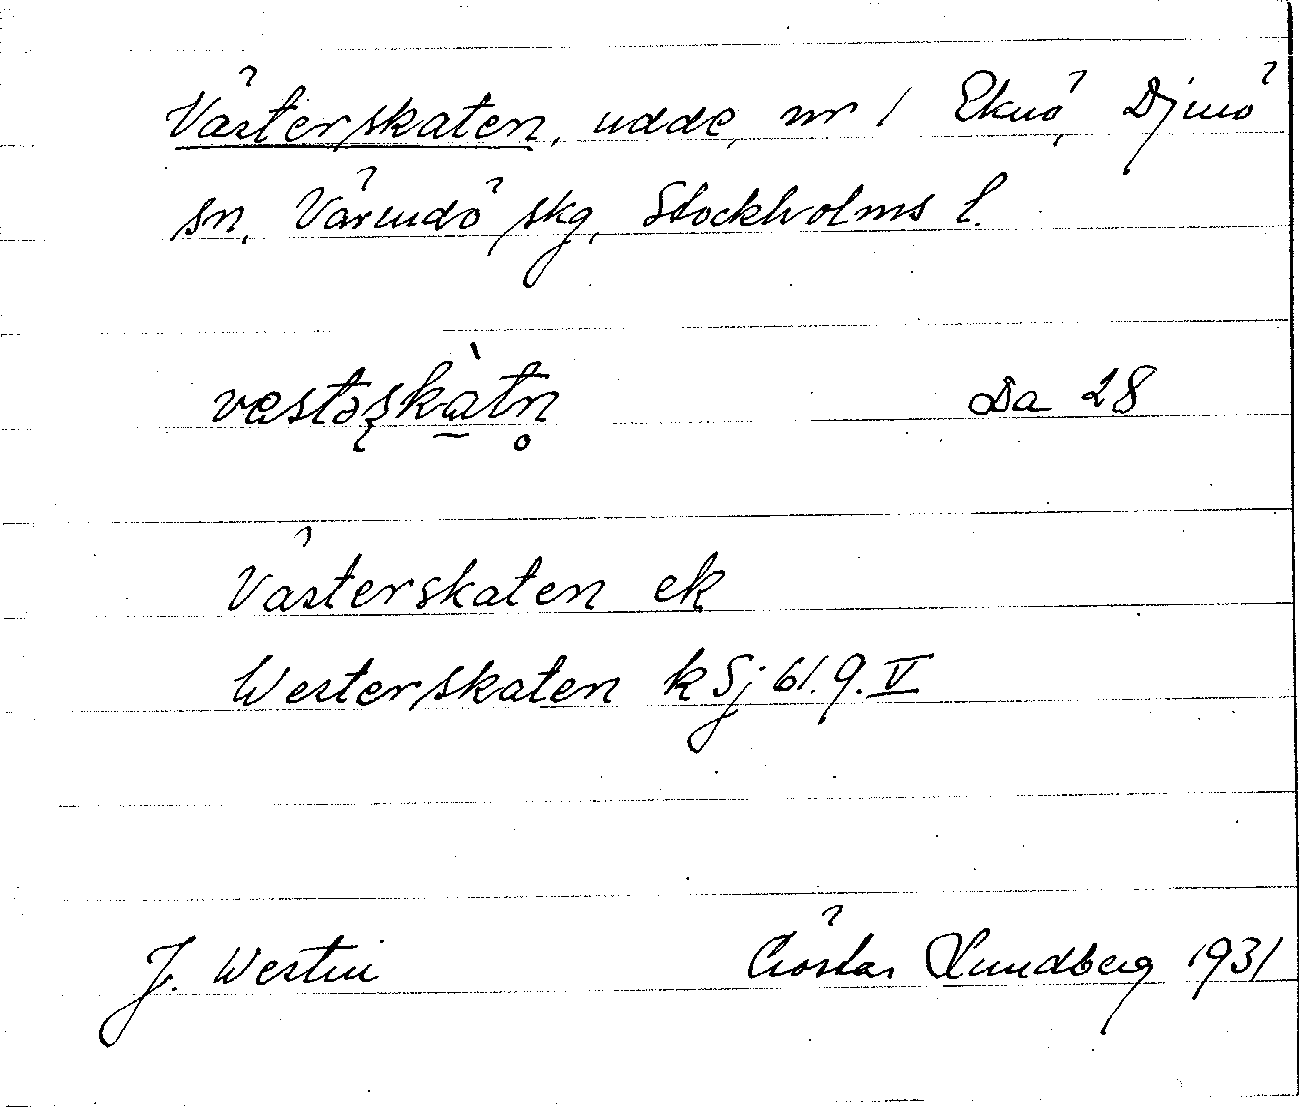 Västerskaten, udde, nr 1 Eknö, Djurö
sn, Värmdö skg, Stockholms l.
vɛstəʂkàtn̥ Da 28
Västerskaten ek
Westerskaten k Sj 61.9.V
J. Westin Gösta Lundberg 1931